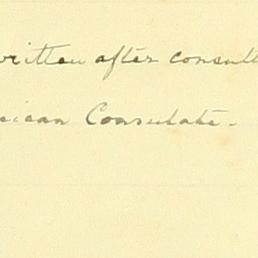 written after consult
ican Consulate.